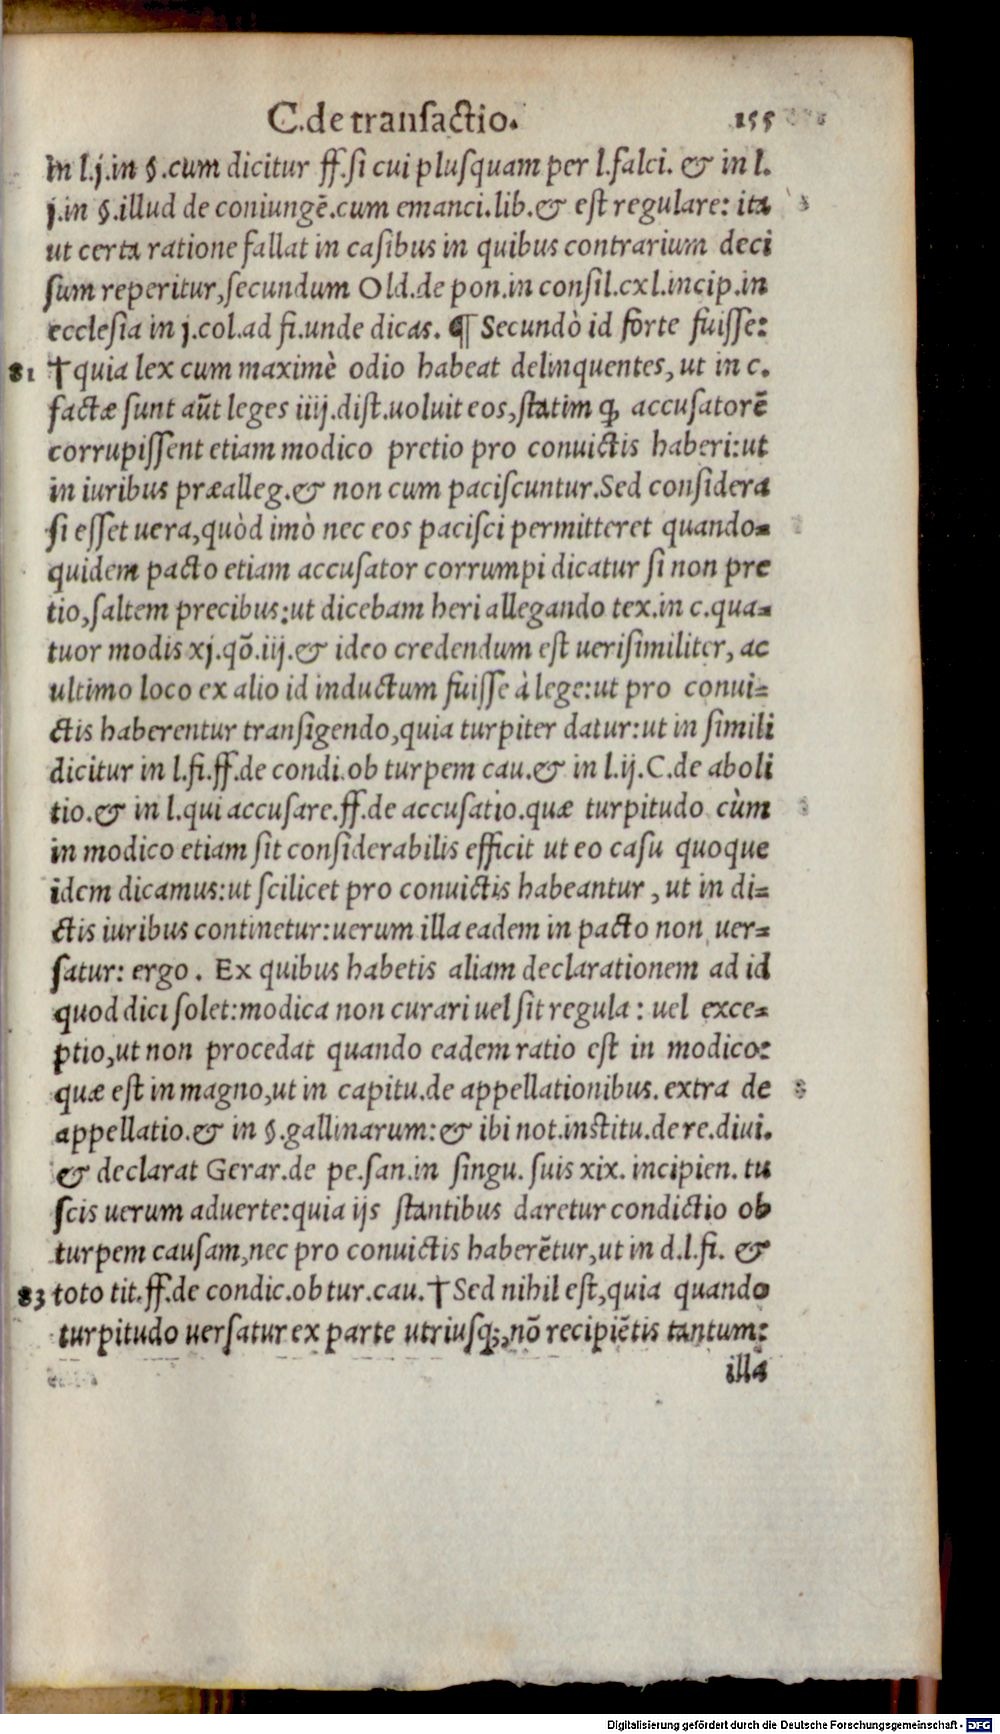 C. de transactio. 155
in l.j.in §.cum dicitur ff.si cui plusquam per l.falci. & in l.
j.in §.illud de coniungẽ.cum emanci.lib.& est regulare: ita
ut certa ratione fallat in casibus in quibus contrarium deci
sum reperitur,secundum Old.de pon.in consil.cxl.incip.in
ecclesia in j.col.ad fi.unde dicas. ¶ Secundò id forte fuisse:
81 †quia lex cum maximè odio habeat delinquentes, ut in c.
factæ sunt aũt leges iiij.dist.uoluit eos,statim ꝙ accusatorẽ
corrupissent etiam modico pretio pro convictis haberi:ut
in iuribus præalleg.& non cum paciscuntur.Sed considera
si esset uera,quòd imò nec eos pacisci permitteret quando-
quidem pacto etiam accusator corrumpi dicatur si non pre
tio,saltem precibus:ut dicebam heri allegando tex.in c.qua-
tuor modis xj.qõ.iij.& ideo credendum est uerisimiliter, ac
ultimo loco ex alio id inductum fuisse à lege:ut pro conui-
ctis haberentur transigendo,quia turpiter datur:ut in simili
dicitur in l.fi.ff.de condi.ob turpem cau.& in l.ij.C.de aboli
tio.& in l.qui accusare.ff.de accusatio.quæ turpitudo cùm
in modico etiam sit considerabilis efficit ut eo casu quoque
idem dicamus:ut scilicet pro convictis habeantur, ut in di-
ctis iuribus continetur:uerum illa eadem in pacto non uer-
satur: ergo. Ex quibus habetis aliam declarationem ad id
quod dici solet:modica non curari uel sit regula: uel exce-
ptio,ut non procedat quando eadem ratio est in modico:
quæ est in magno,ut in capitu.de appellationibus. extra de
appellatio.& in §.gallinarum:& ibi not.institu.de re.diui.
& declarat Gerar.de pe.san.in singu. suis xix. incipien. tu
scis uerum aduerte:quia ijs stantibus daretur condictio ob
turpem causam,nec pro convictis haberẽtur,ut in d.l.fi. &
83 toto tit.ff.de condic.ob tur.cau.†Sed nihil est,quia quando
turpitudo uersatur ex parte utriusq;,nõ recipiẽtis tantum:
illa
Digitalisierung gefördert durch die Deutsche Forschungsgemeinschaft - DFG